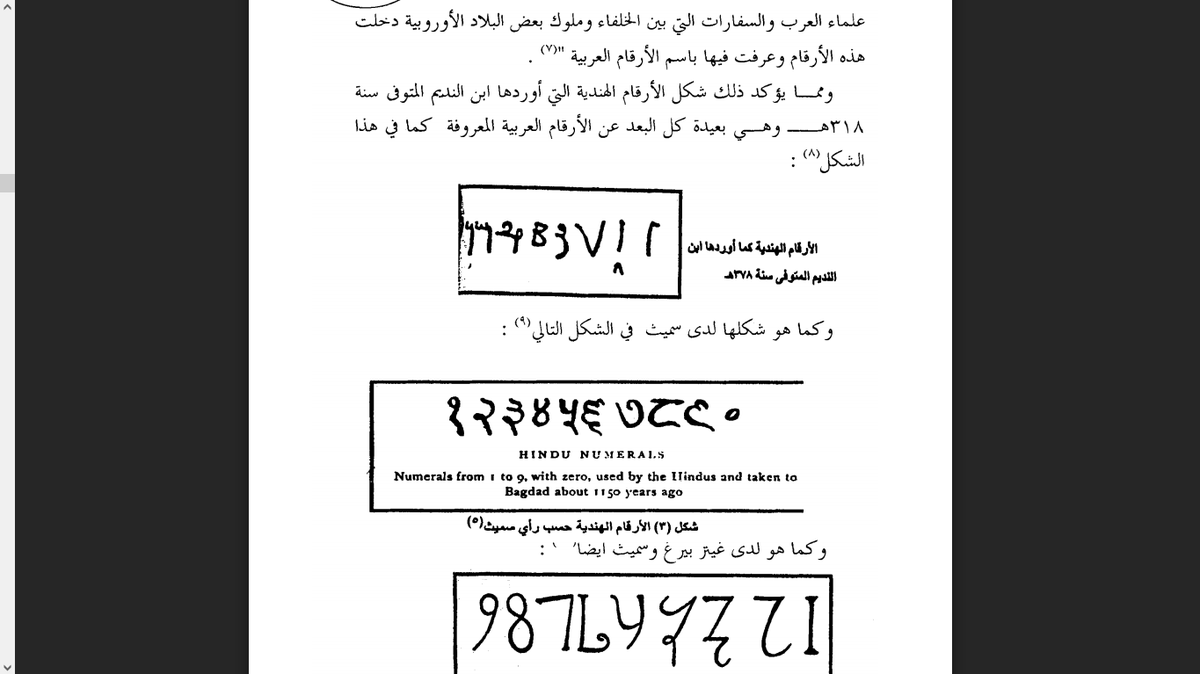 علماء العرب والسفارات التي بين الخلفاء وملوك بعض البلاد الأوروبية دخلت
هذه الأرقام وعرفت فيها باسم الأرقام العربية "(٧) .
وممـــا يؤكد ذلك شكل الأرقام الهندية التي أوردها ابن النديم المتوفى سنة
٣١٨هـــــ وهـــي بعيدة كل البعد عن الأرقام العربية المعروفة كما في هذا
الشكل(٨) :
الأرقام الهندية كما أوردها ابن
النديم المتوفى سنة ٣٧٨هـ
وكما هو شكلها لدى سميث في الشكل التالي(٩) :
१२३४५६७८९०
HINDU NUMERALS
Numerals from 1 to 9, with zero, used by the Hindus and taken to
Bagdad about 1150 years ago
شكل (٣) الأرقام الهندية حسب رأي سميث(٥)
وكما هو لدى غيتز بيرغ وسميث ايضا :